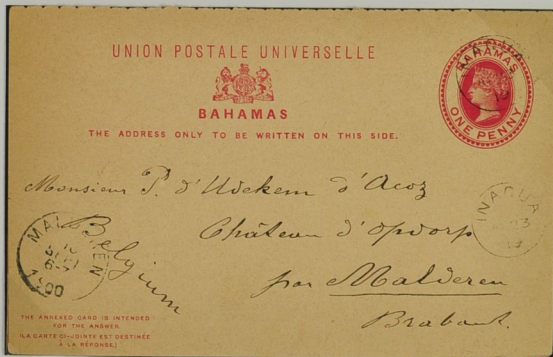 UNION POSTALE UNIVERSELLE
BAHAMAS
THE ADDRESS ONLY TO BE WRITTEN ON THIS SIDE.
BAHAMAS
ONE PENNY
Monsieur P. d'Udekem d'Acoz
Château d'Opdorp
par Malderen
Brabant.
Belgium
INAGUA
MALDEREN
1900
THE ANNEXED CARD IS INTENDED
FOR THE ANSWER.
(LA CARTE CI-JOINTE EST DESTINÉE
À LA RÉPONSE.)